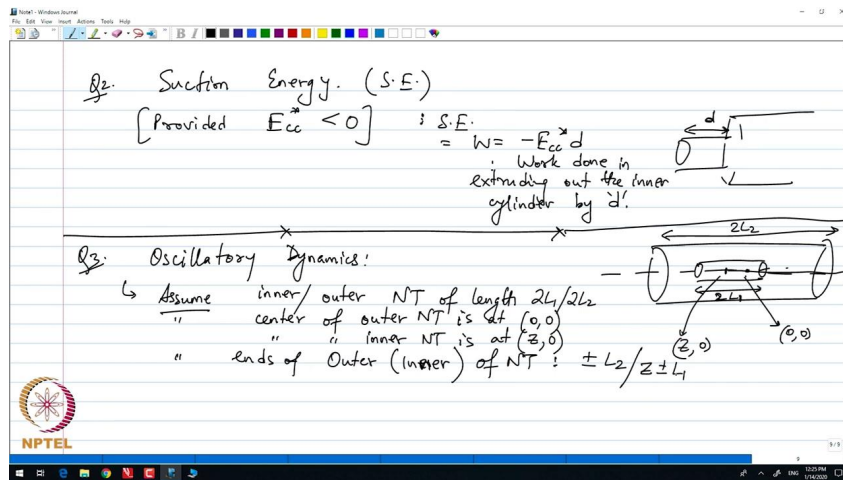 Note1 - Windows Journal
File Edit View Insert Actions Tools Help
Q2. Suction Energy. (S.E.)
[Provided E*cc < 0] : S.E.
= W = -E*cc d
: Work done in
extruding out the inner
cylinder by 'd'.
d
2L2
Q3. Oscillatory Dynamics:
↳ Assume inner/outer NT of length 2L1/2L2
" center of outer NT is at (0,0)
" " inner NT is at (Z,0)
" ends of Outer (Inner) of NT : ± L2/Z ± L1
2L1
(Z,0)
(0,0)
NPTEL
9/9
9
ENG
12:25 PM
1/14/2020